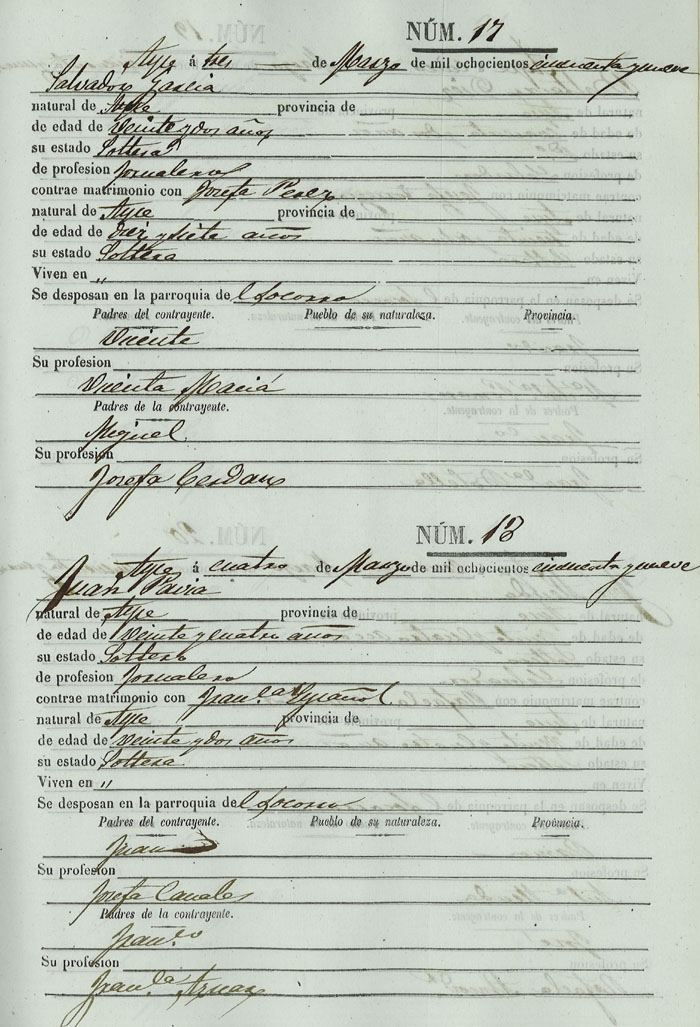 NÚM. 17
Aspe á tres de Marzo de mil ochocientos cincuenta y nueve
Salvador Garcia
natural de Aspe provincia de
de edad de Veinte y dos años
su estado Soltero
de profesion Jornalero
contrae matrimonio con Josefa Perez
natural de Aspe provincia de
de edad de diez y siete años
su estado Soltera
Viven en "
Se desposan en la parroquia del Socorro
Padres del contrayente. Pueblo de su naturaleza. Provincia.
Vicente
Su profesion
Vicenta Maciá
Padres de la contrayente.
Miguel
Su profesion
Josefa Cerdan
NÚM. 18
Aspe á cuatro de Marzo de mil ochocientos cincuenta y nueve
Juan Pavia
natural de Aspe provincia de
de edad de Veinte y cuatro años
su estado Soltero
de profesion Jornalero
contrae matrimonio con Fran.ca Español
natural de Aspe provincia de
de edad de Veinte y dos años
su estado Soltera
Viven en "
Se desposan en la parroquia del Socorro
Padres del contrayente. Pueblo de su naturaleza. Provincia.
Juan
Su profesion
Josefa Canales
Padres de la contrayente.
Fran.co
Su profesion
Fran.ca Aznar